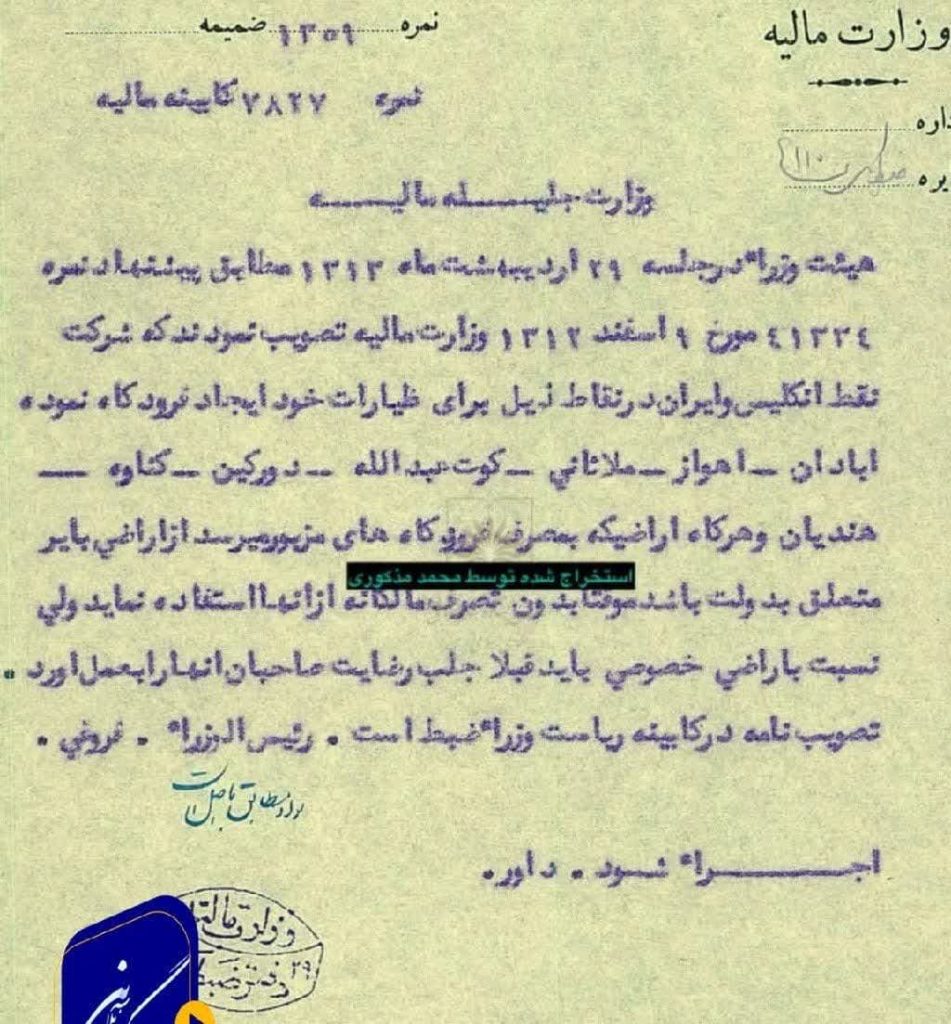 وزارت مالیه
نمره ۱۳۵۹ ضمیمه
نمره ۷۸۲۷ کابینه مالیه
داره
یره
وزارت جلیله مالیه
هیئت وزراء درجلسه ۲۹ اردیبهشت ماه ۱۳۱۳ مطابق پیشنهاد نمره
۴۱۳۳۴ مورخ ۹ اسفند ۱۳۱۲ وزارت مالیه تصویب نمودند که شرکت
نفط انگلیس وایران درنقاط ذیل برای طیارات خود ایجاد فرودگاه نموده
ابادان ــ اهواز ــ ملاثانی ــ کوت عبدالله ــ دورکین ــ کناوه ــ
هندیان وهرگاه اراضیکه بمصرف فرودگاه های مزبورمیرسد ازاراضی بایر
استخراج شده توسط محمد مذکوری
متعلق بدولت باشد موقتا بدون تصرف مالکانه ازانها استفاده نماید ولی
نسبت باراضی خصوصی باید قبلا جلب رضایت صاحبان انهارا بعمل اورد .
تصویب نامه درکابینه ریاست وزراء ضبط است . رئیس الوزراء . فروغی .
سواد مطابق با اصل است
اجـــراء شود . داور .
وزارت مالیه
۲۹ دفتر ضبط